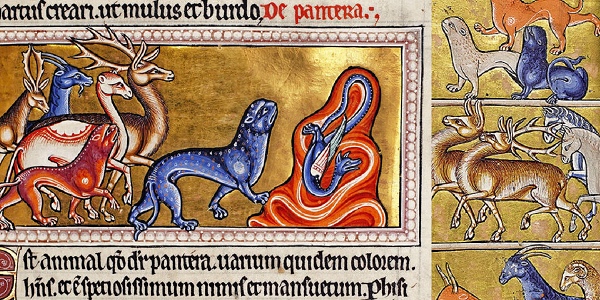 partus creari. ut mulus et burdo De pantera.,
st animal. qd dr pantera. uarium quidem colorem.
hñs. et ē speciosissimum nimis et mansuetum. Phisi